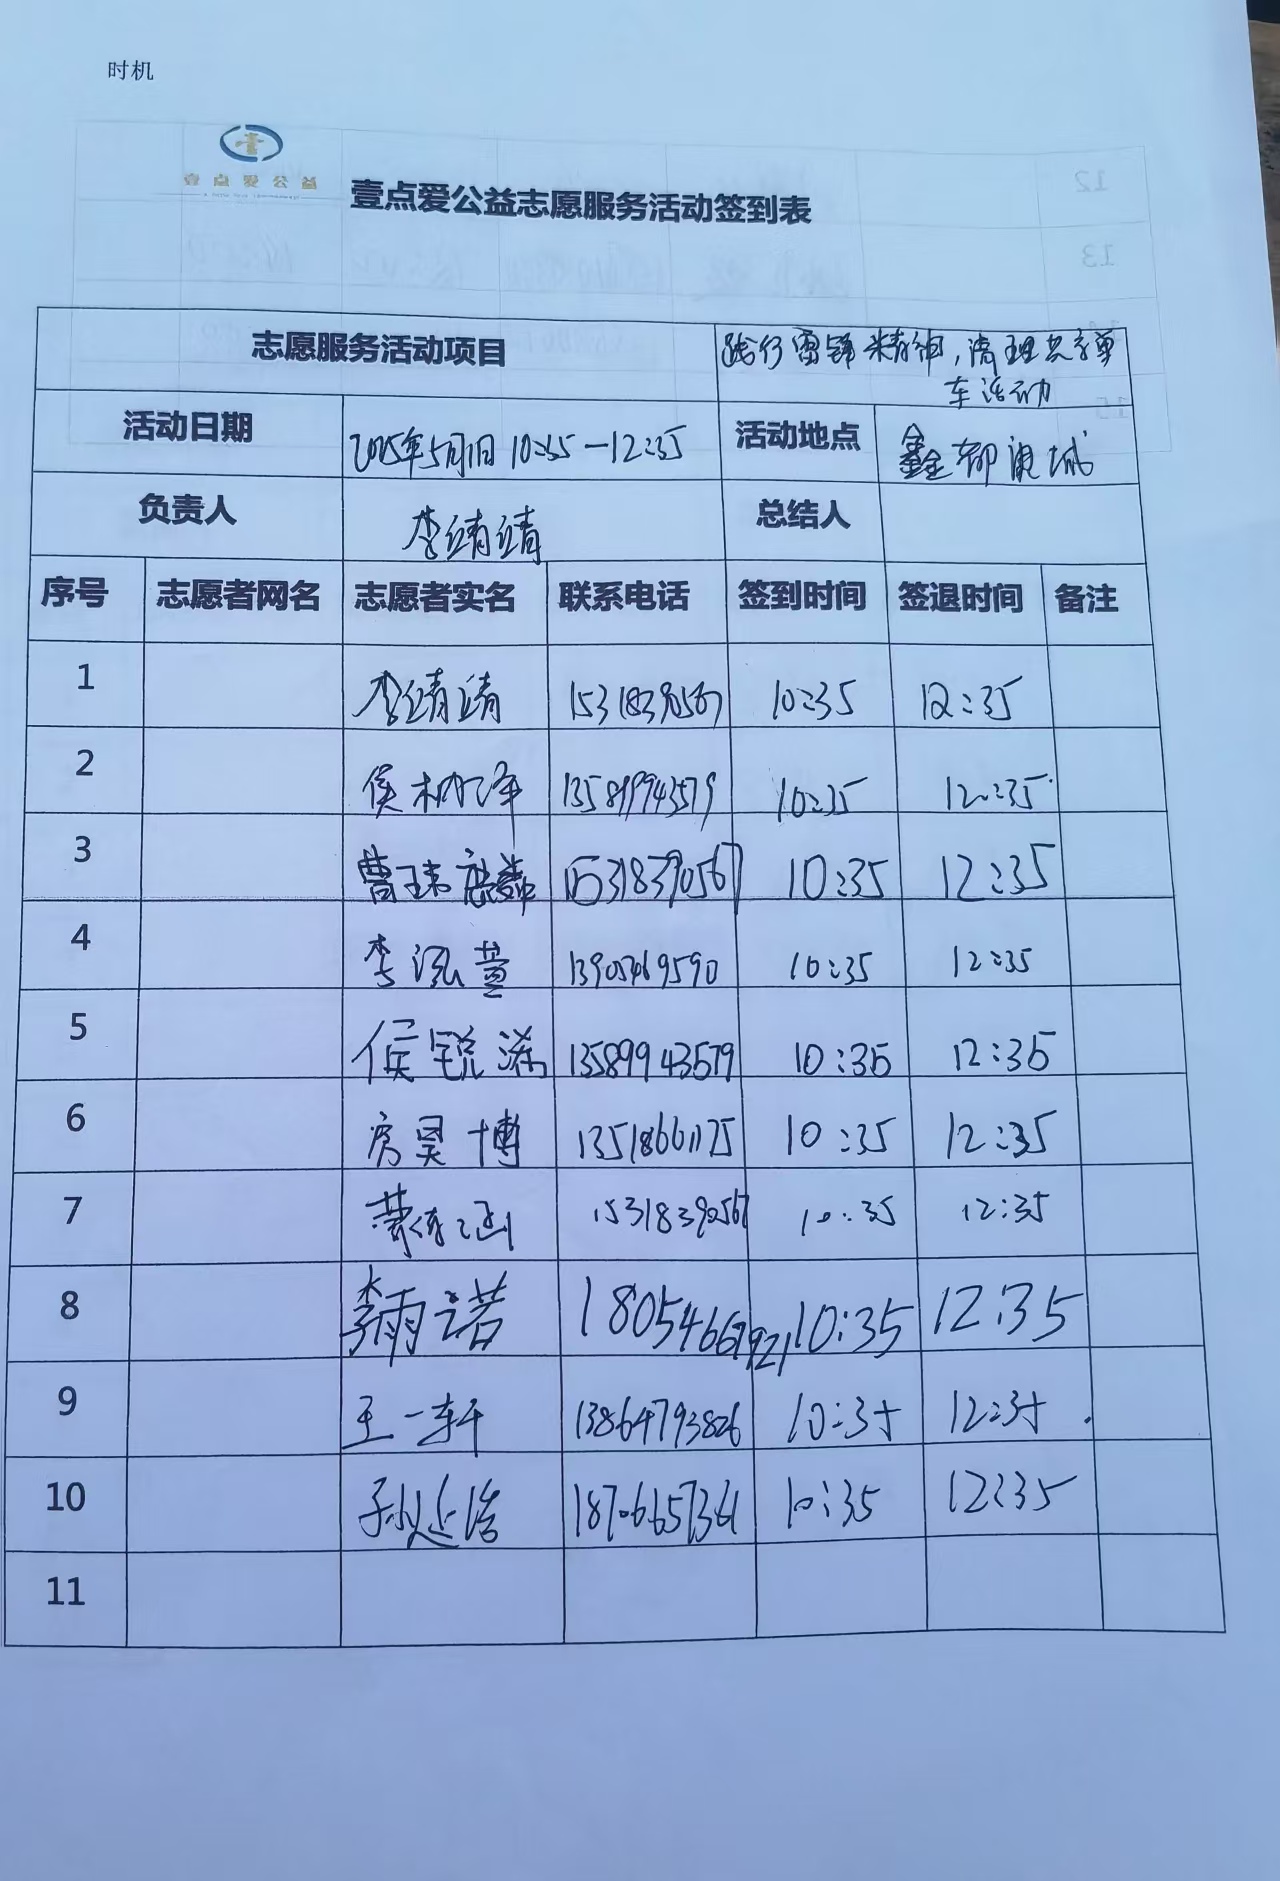 时机
壹点爱公益
壹点爱公益志愿服务活动签到表
志愿服务活动项目 践行雷锋精神,清理共享单
车活动
活动日期 2025年5月1日 10:35—12:35 活动地点 鑫都康城
负责人 李靖靖 总结人
序号 志愿者网名 志愿者实名 联系电话 签到时间 签退时间 备注
1 李靖靖 15318390567 10:35 12:35
2 侯树泽 13589943579 10:35 12:35
3 曹玮 15318390567 10:35 12:35
4 李泓萱 13905469590 10:35 12:35
5 侯锐 13589943579 10:35 12:35
6 房昊博 13518661175 10:35 12:35
7 涵 15318390567 10:35 12:35
8 李雨诺 18054667921 10:35 12:35
9 王一轩 13864793826 10:35 12:35
10 孙延浩 18706657361 10:35 12:35
11
12
13
15